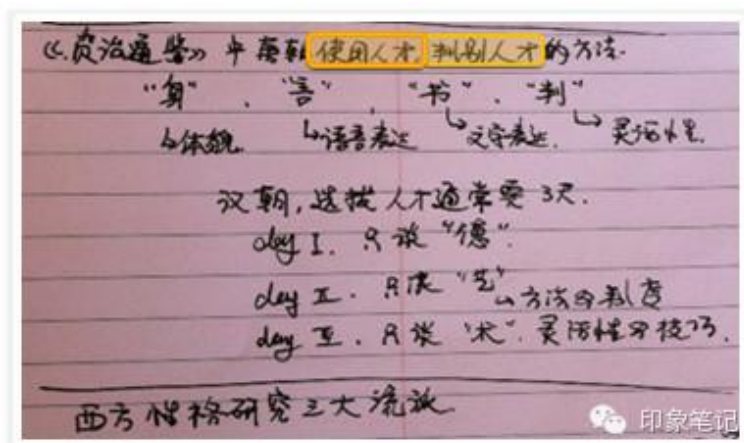 《资治通鉴》中唐朝使用人才,判别人才的方法.
“身”、“言”、“书”、“判”
↳体貌. ↳语言表达 ↳文字表达. ↳灵活性.
汉朝,选拔人才通常要3天.
day I. 只谈“德”.
day II. 只谈“艺” ↳方法与制度
day III. 只谈“术”. 灵活性与技巧.
西方性格研究三大流派
印象笔记